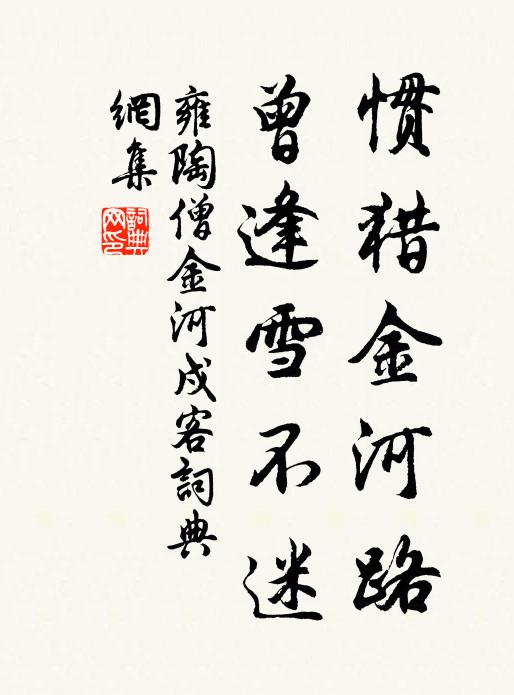 惯猎金河路
曾逢雪不迷
雍陶僧金河戍客詞典
網集
詞典
网印